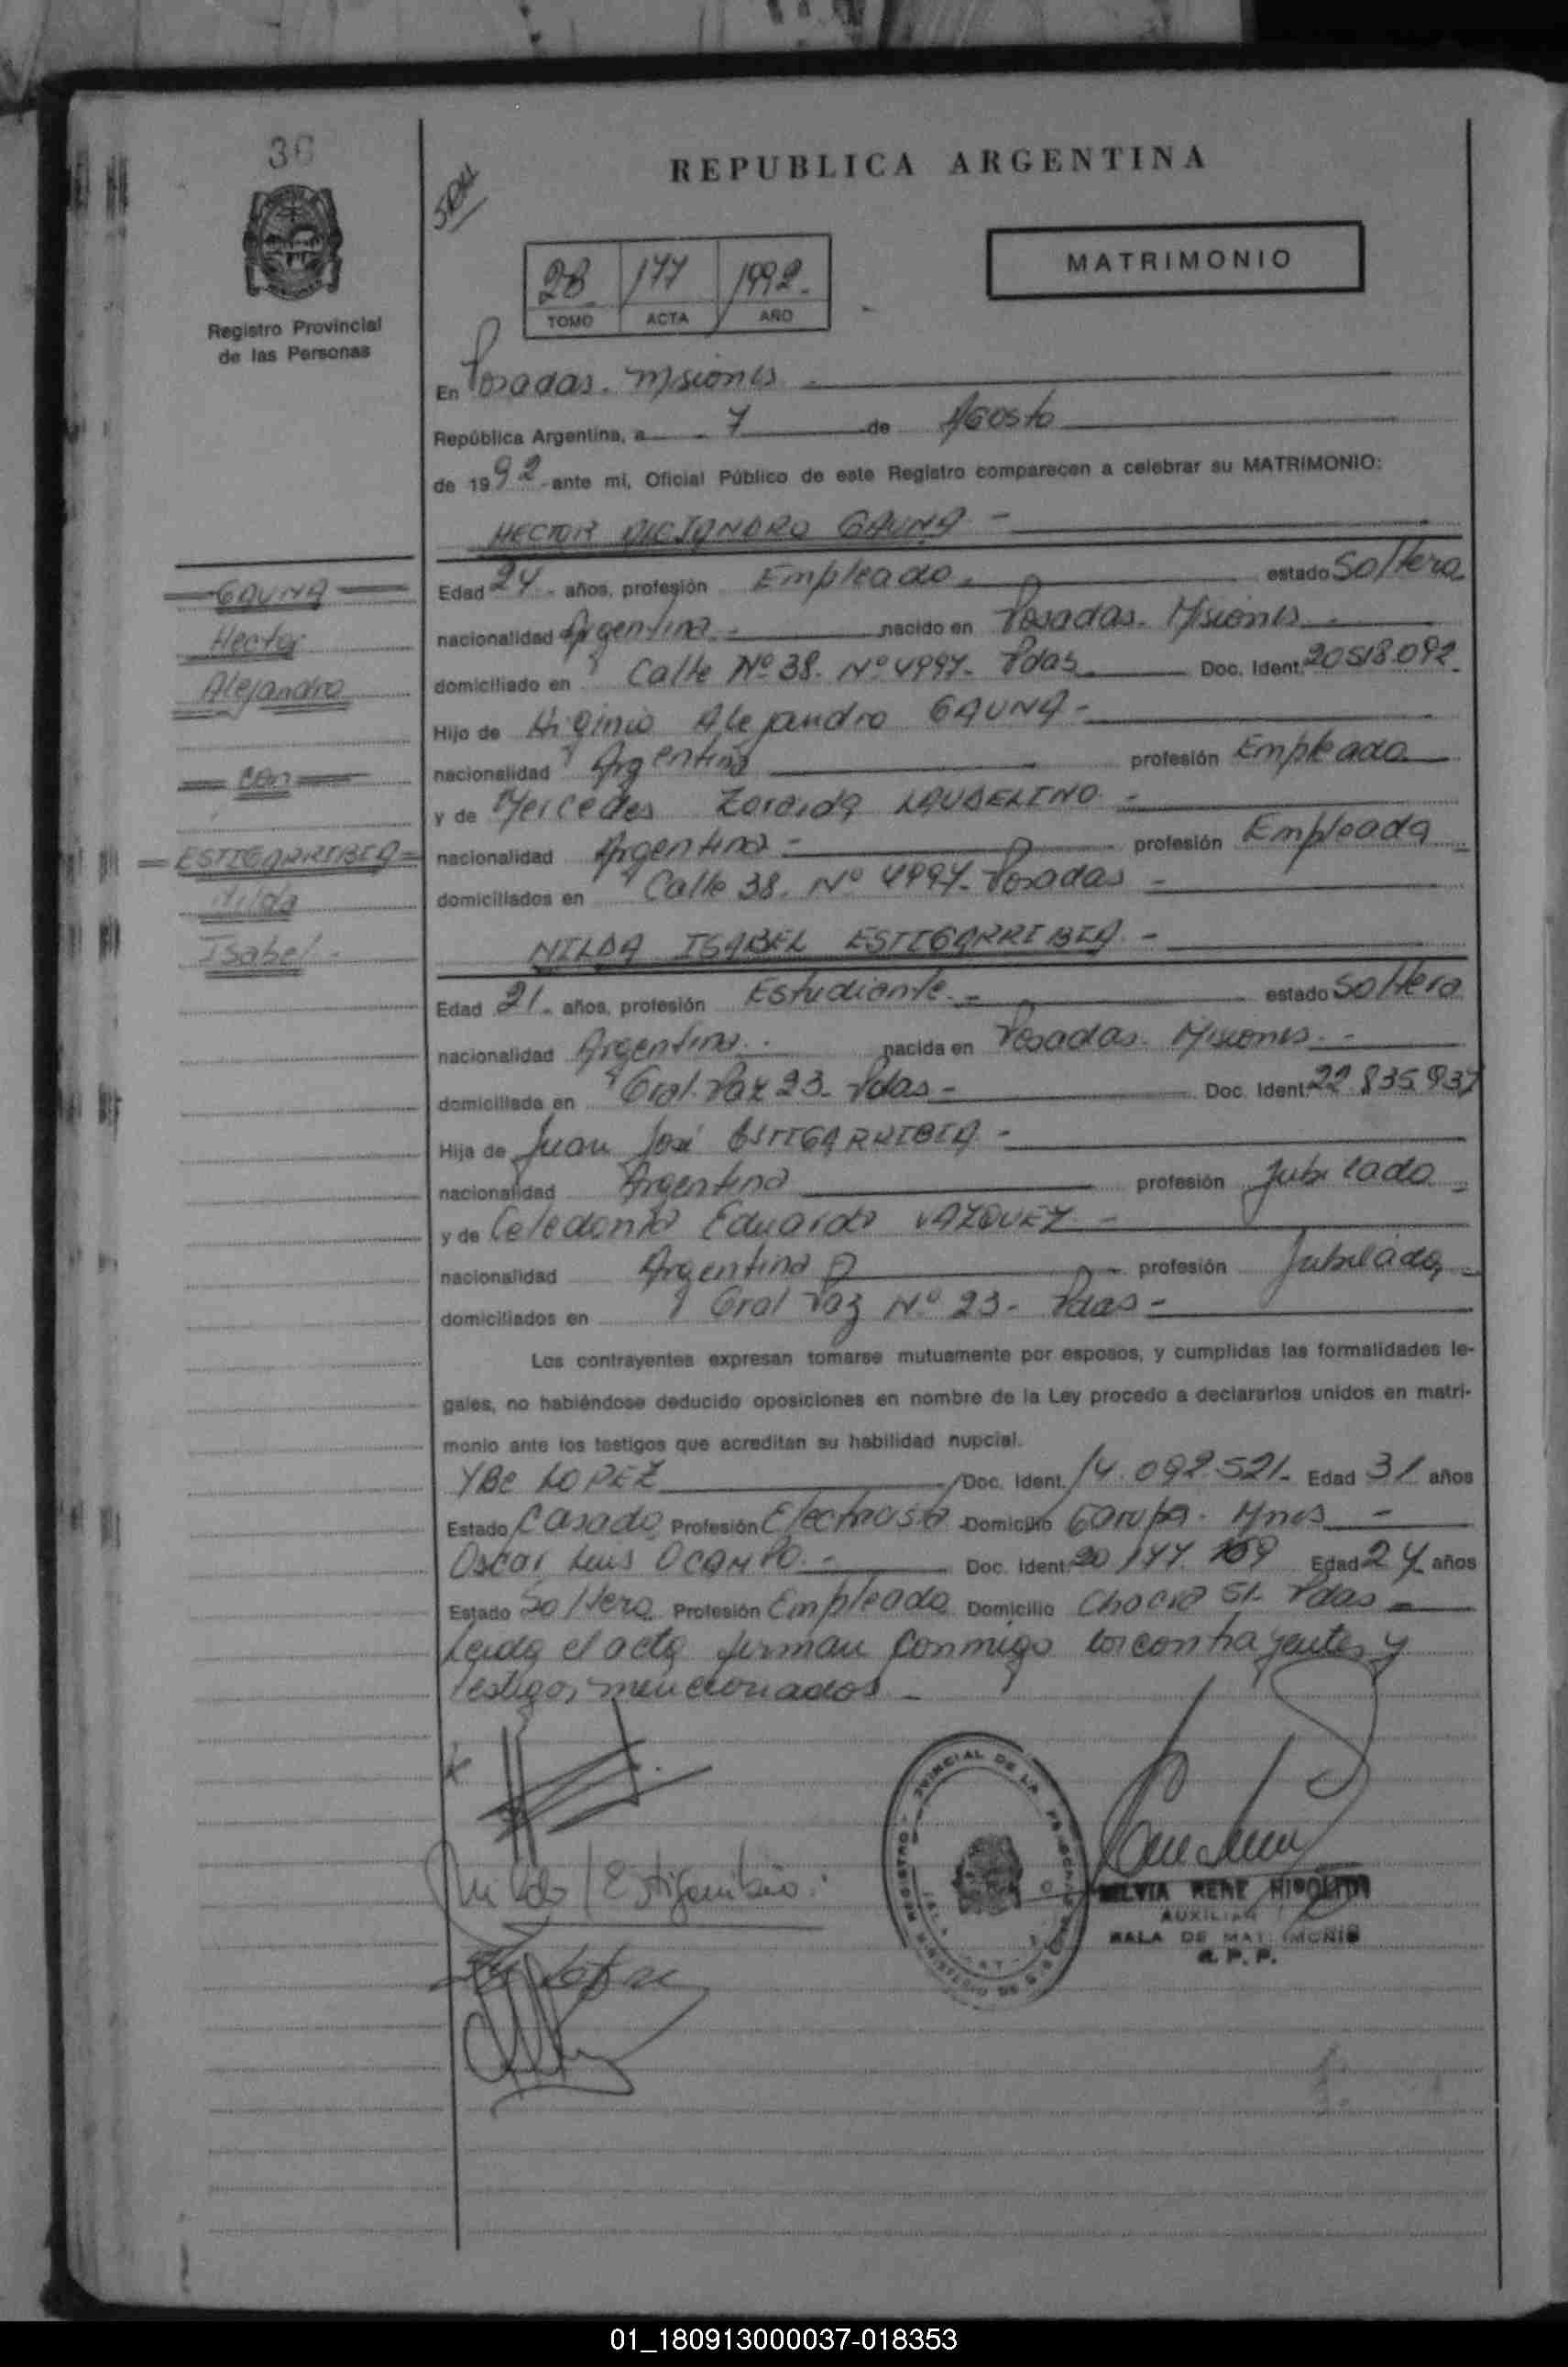 36
REPUBLICA ARGENTINA
28 177 1992.
TOMO ACTA AÑO
MATRIMONIO
Registro Provincial
de las Personas
En Posadas. Misiones
República Argentina, a 7 de Agosto
de 1992 ante mi, Oficial Público de este Registro comparecen a celebrar su MATRIMONIO:
HECTOR ALEJANDRO GAUNA -
GAUNA
Hector
Alejandro
con
ESTIGARRIBIA
Nilda
Isabel -
Edad 24 - años, profesión Empleado. estado Soltero
nacionalidad Argentina - nacido en Posadas. Misiones -
domiciliado en Calle Nº 38. Nº 4997- Pdas Doc. Ident. 20518.092.
Hijo de Higinio Alejandro GAUNA -
nacionalidad Argentina profesión Empleado
y de Mercedes Zoraida LAUDELINO -
nacionalidad Argentina - profesión Empleada
domiciliados en Calle 38. Nº 4997- Posadas -
NILDA ISABEL ESTIGARRIBIA -
Edad 21. años, profesión Estudiante. - estado Soltera
nacionalidad Argentina. nacida en Posadas. Misiones. -
domiciliada en Gral. Paz 23- Pdas - Doc. Ident. 22.835.937
Hija de Juan José ESTIGARRIBIA -
nacionalidad Argentina profesión Jubilado -
y de Celedonia Eduarda VAZQUEZ -
nacionalidad Argentina profesión Jubilada -
domiciliados en Gral Paz Nº 23- Pdas -
Los contrayentes expresan tomarse mutuamente por esposos, y cumplidas las formalidades le-
gales, no habiéndose deducido oposiciones en nombre de la Ley procedo a declararlos unidos en matri-
monio ante los testigos que acreditan su habilidad nupcial.
YBE LOPEZ Doc. Ident. 14.092.521- Edad 31 años
Estado Casado Profesión Electricista Domicilio Garupa. Mnes -
Oscar Luis OCAMPO. - Doc. Ident. 20 177. Edad 24 años
Estado Soltero Profesión Empleado Domicilio Chacra 51- Pdas -
Leida el acta firman conmigo los contrayentes y
testigos mencionados -
Nilda I Estigarribia
SILVIA RENE HIPOLITO
AUXILIAR
SALA DE MATRIMONIO
R. P. P.
01_180913000037-018353